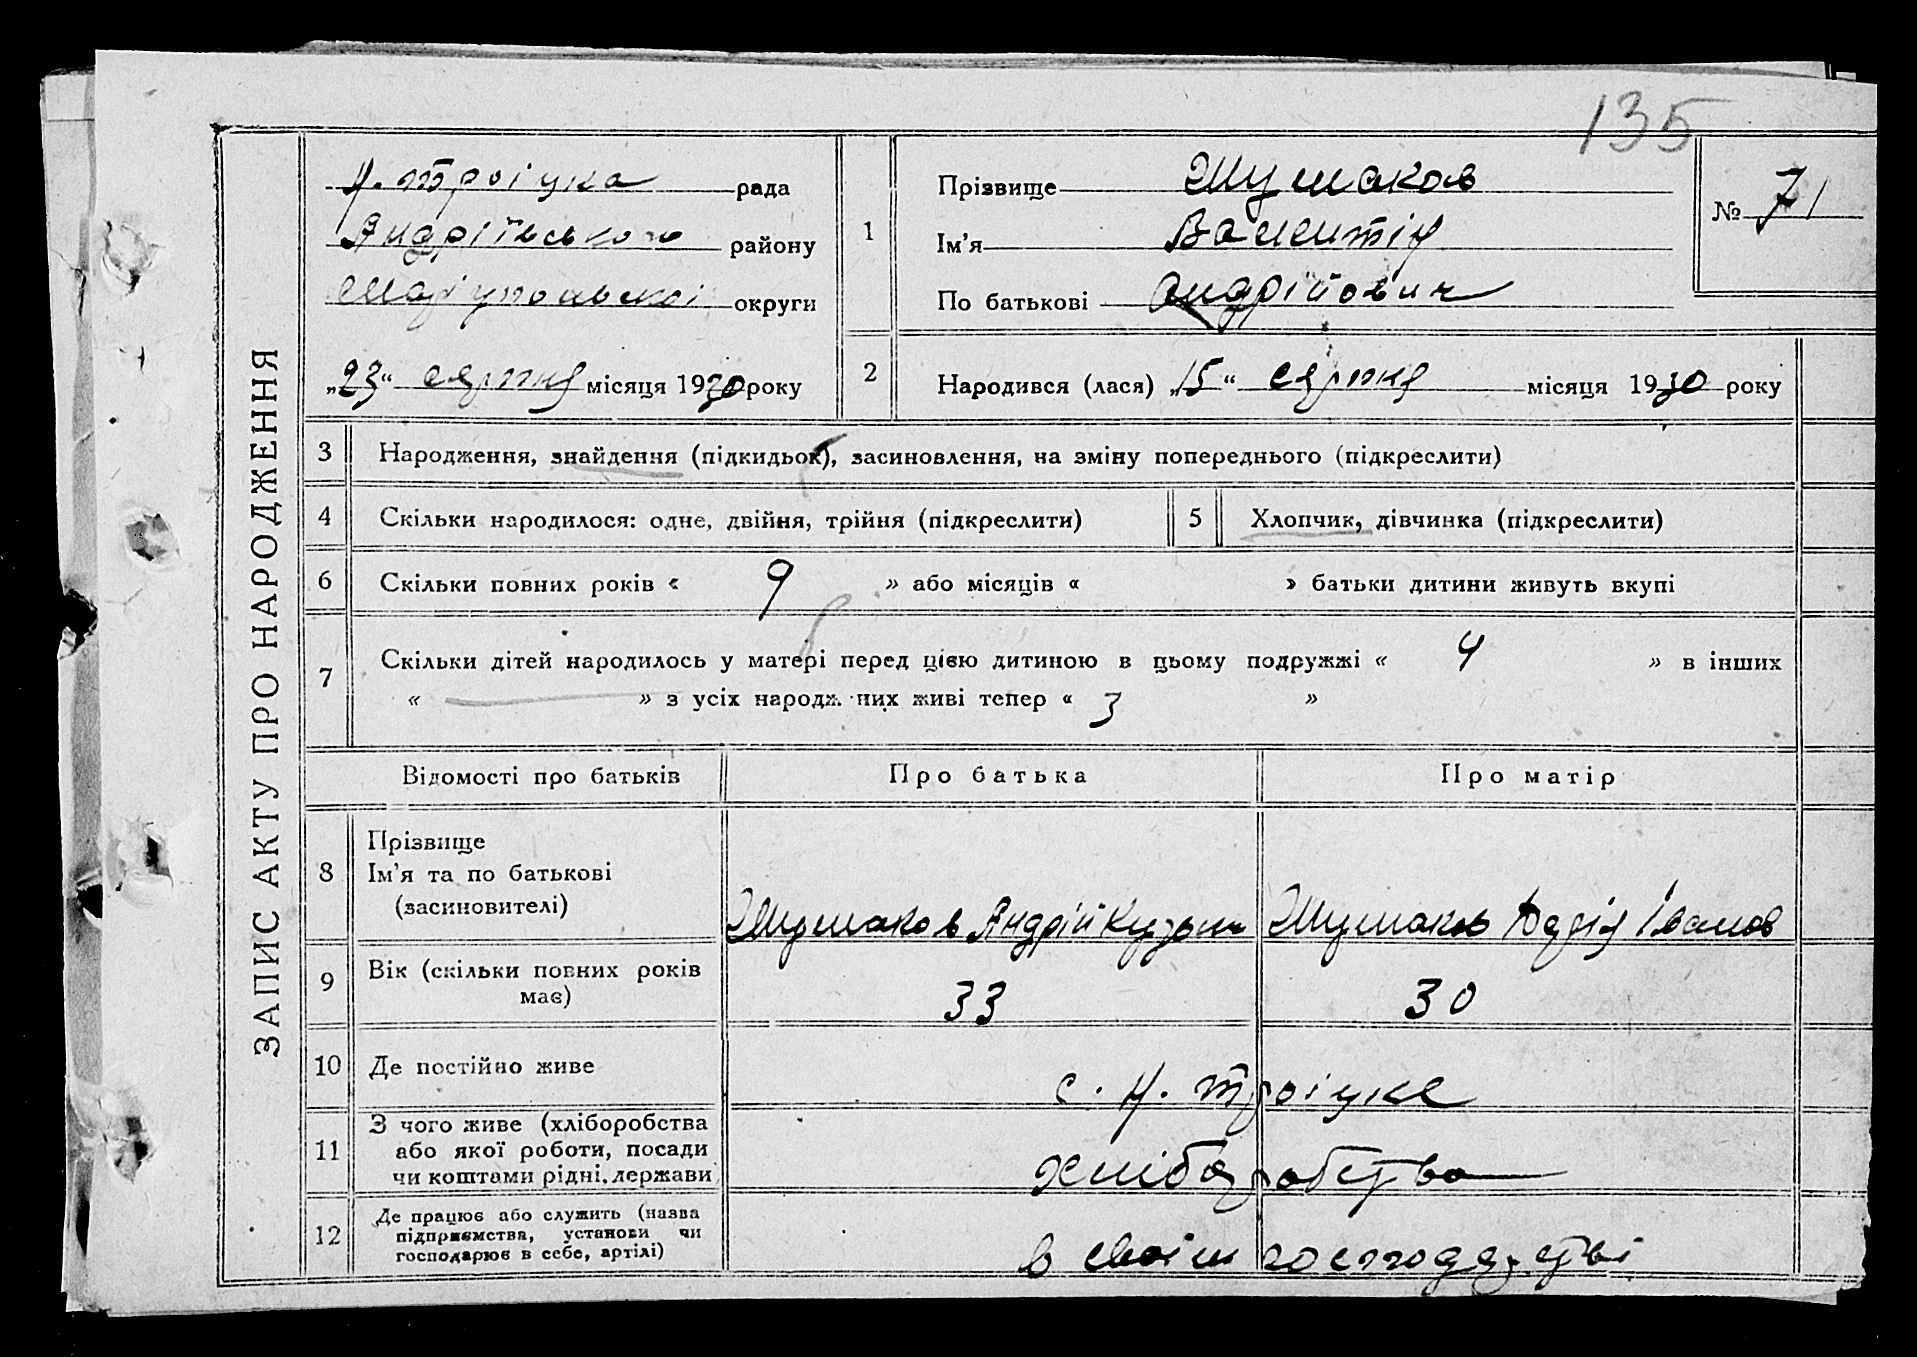 135
ЗАПИС АКТУ ПРО НАРОДЖЕННЯ
Н. Троіцка рада
Андріівського району
Маріупольскоі округи
„23“ серпня місяця 1930 року
1
Прізвище Шушаков
Ім’я Валентін
По батькові Андрійович
№ 71
2 Народився (лася) „15“ серпня місяця 1930 року
3 Народження, знайдення (підкидьок), засиновлення, на зміну попереднього (підкреслити)
4 Скільки народилося: одне, двійня, трійня (підкреслити)
5 Хлопчик, дівчинка (підкреслити)
6 Скільки повних років « 9 » або місяців « » батьки дитини живуть вкупі
7 Скільки дітей народилось у матері перед цією дитиною в цьому подружжі « 4 » в інших
« — » з усіх народж них живі тепер « 3 »
Відомості про батьків Про батька Про матір
8 Прізвище
Ім’я та по батькові
(засиновителі)
Шушаков Андрій Кузьм Шушаков Іванов
9 Вік (скільки повних років
має)
33 30
10 Де постійно живе
с. Н. Троіцке
11 З чого живе (хліборобства
або якої роботи, посади
чи коштами рідні, держави
хліборобство
12 Де працює або служить (назва
підприємства, установи чи
господарює в себе, артілі)
в своім господарстві